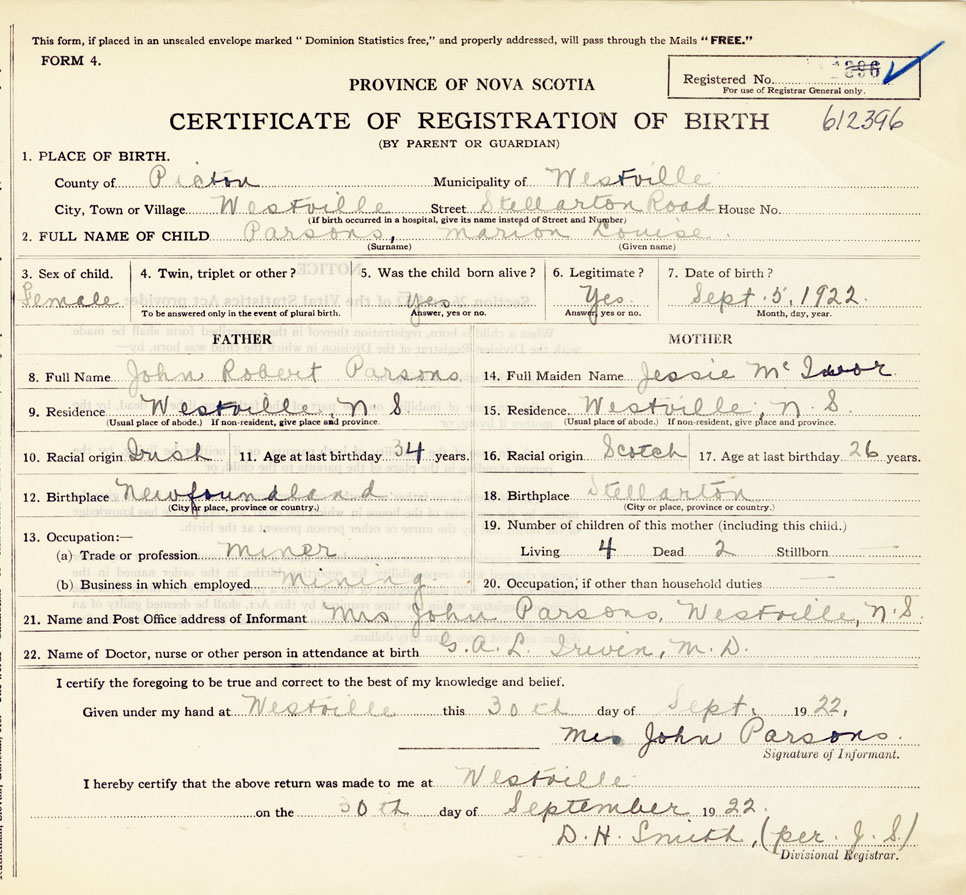 This form, if placed in an unsealed envelope marked "Dominion Statistics free," and properly addressed, will pass through the Mails "FREE."
FORM 4.
Registered No. 1396
For use of Registrar General only.
PROVINCE OF NOVA SCOTIA
CERTIFICATE OF REGISTRATION OF BIRTH 612396
(BY PARENT OR GUARDIAN)
1. PLACE OF BIRTH.
County of Picton Municipality of Westville
City, Town or Village Westville Street Stellarton Road House No.
(If birth occurred in a hospital, give its name instead of Street and Number)
2. FULL NAME OF CHILD Parsons, Marion Louise.
(Surname) (Given name)
3. Sex of child. 4. Twin, triplet or other? 5. Was the child born alive? 6. Legitimate? 7. Date of birth?
Female Yes Yes. Sept. 5, 1922
To be answered only in the event of plural birth. Answer, yes or no. Answer, yes or no. Month, day, year.
FATHER MOTHER
8. Full Name John Robert Parsons 14. Full Maiden Name Jessie McIvor
9. Residence Westville, N.S. 15. Residence Westville, N.S.
(Usual place of abode.) If non-resident, give place and province. (Usual place of abode.) If non-resident, give place and province.
10. Racial origin Irish 11. Age at last birthday 34 years. 16. Racial origin Scotch 17. Age at last birthday 26 years.
12. Birthplace Newfoundland 18. Birthplace Stellarton
(City or place, province or country.) (City or place, province or country.)
19. Number of children of this mother (including this child.)
13. Occupation:—
(a) Trade or profession Miner Living 4 Dead 2 Stillborn
(b) Business in which employed Mining 20. Occupation, if other than household duties
21. Name and Post Office address of Informant Mrs John Parsons, Westville, N.S.
22. Name of Doctor, nurse or other person in attendance at birth G. A. L. Irwin, M.D.
I certify the foregoing to be true and correct to the best of my knowledge and belief.
Given under my hand at Westville this 30th day of Sept. 1922,
Mrs John Parsons.
Signature of Informant.
I hereby certify that the above return was made to me at Westville
on the 30th day of September 1922.
D. H. Smith, (per. J. S.)
Divisional Registrar.